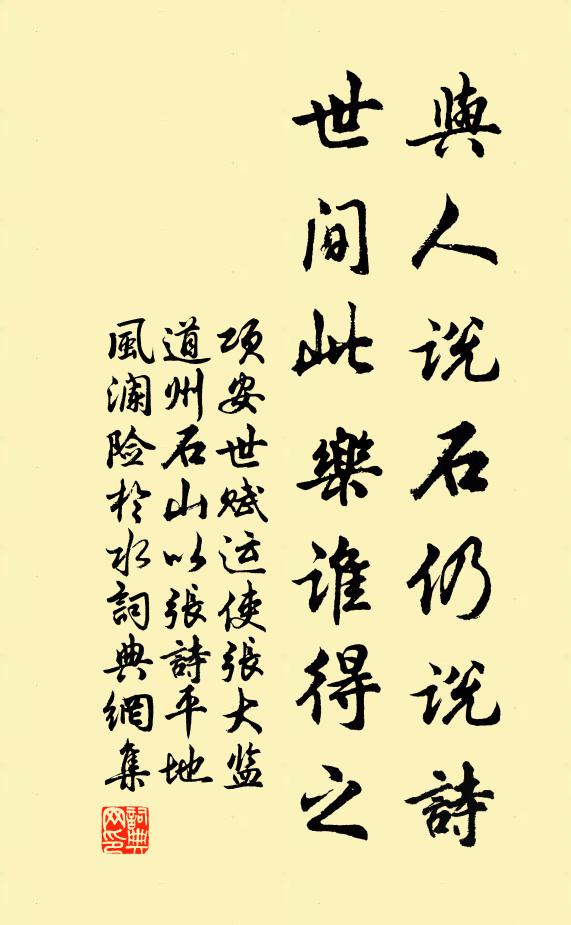 與人说石仍说詩
世间此樂谁得之
项安世赋运使張大监
道州石山以張詩平地
風澜险於水詞典網集
詞典网印